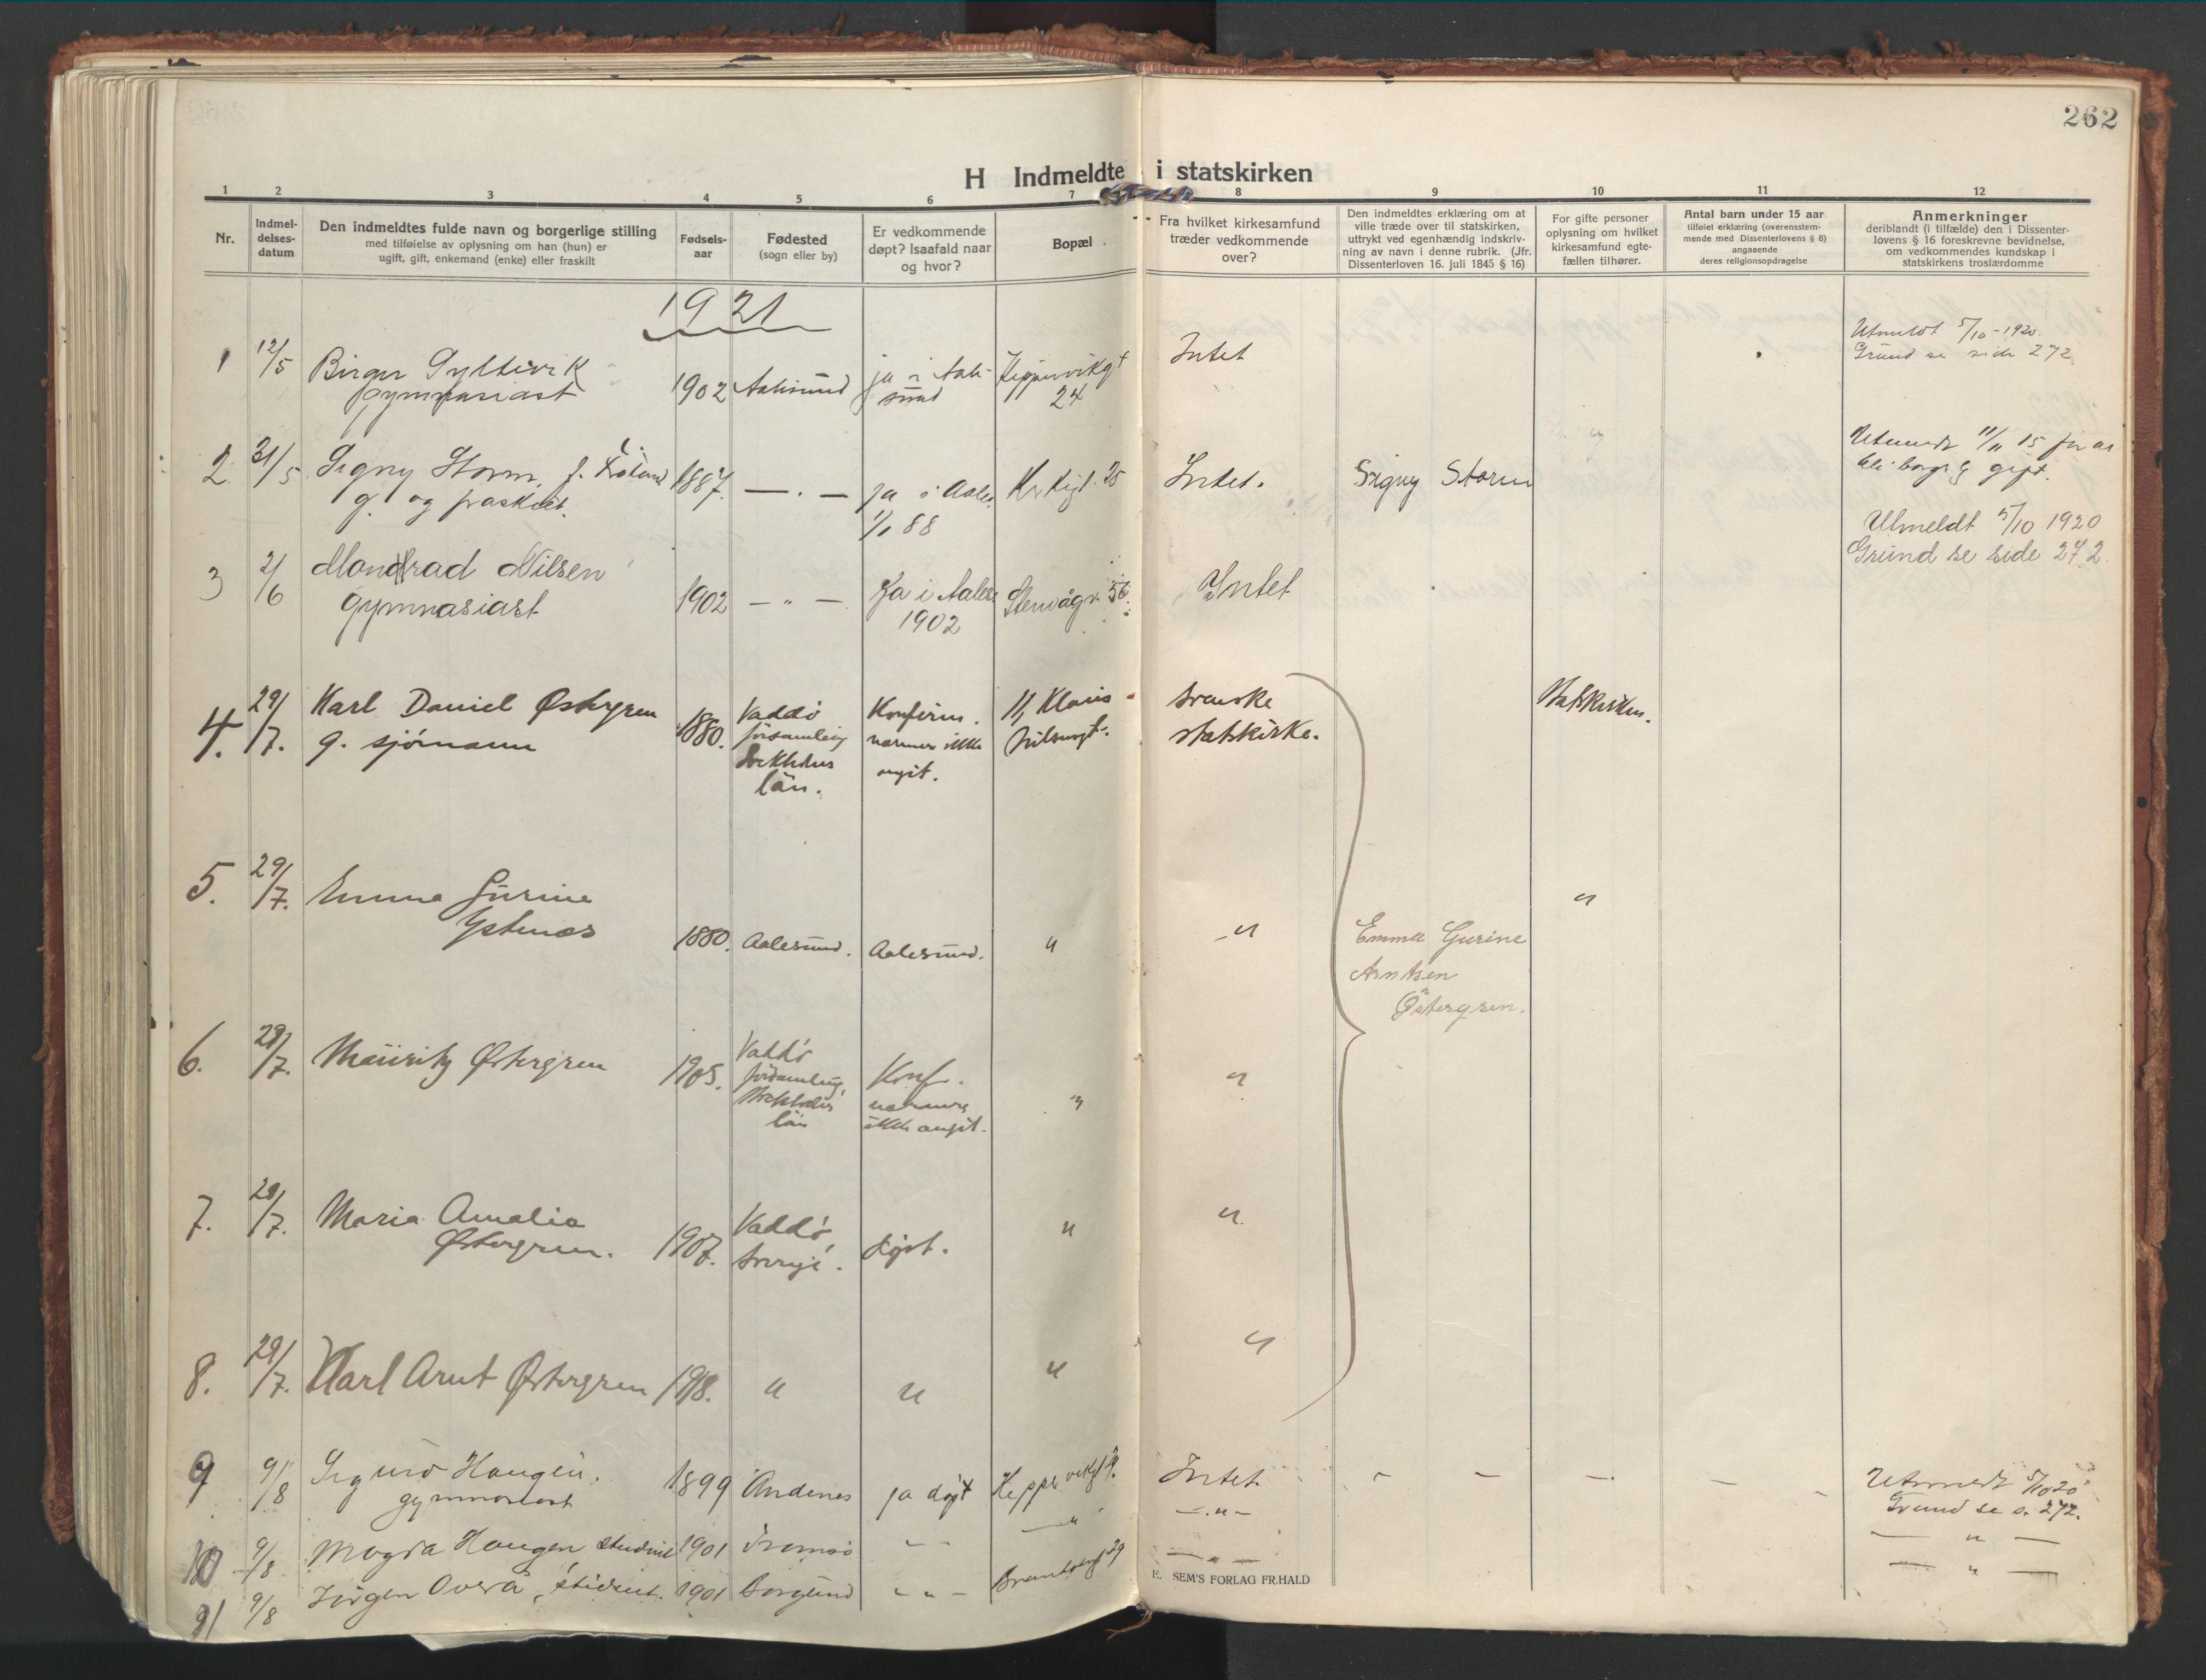 262
H Indmeldte i statskirken
1 2 3 4 5 6 7 8 9 10 11 12
Nr.
Indmel-
delses-
datum
Den indmeldtes fulde navn og borgerlige stilling
med tilføielse av oplysning om han (hun) er
ugift, gift, enkemand (enke) eller fraskilt
Fødsels-
aar
Fødested
(sogn eller by)
Er vedkommende
døpt? Isaafald naar
og hvor?
Bopæl
Fra hvilket kirkesamfund
træder vedkommende
over?
Den indmeldtes erklæring om at
ville træde over til statskirken,
uttrykt ved egenhændig indskriv-
ning av navn i denne rubrik. (Jfr.
Dissenterloven 16. juli 1845 § 16)
For gifte personer
oplysning om hvilket
kirkesamfund egte-
fællen tilhører.
Antal barn under 15 aar
tilføiet erklæring (overensstem-
mende med Dissenterlovens § 8)
angaaende
deres religionsopdragelse
Anmerkninger
deriblandt (i tilfælde) den i Dissenter-
lovens § 16 foreskrevne bevidnelse,
om vedkommendes kundskap i
statskirkens troslærdomme
1921
1 12/5 Birger
gymnasiast
1902 Aalesund
ja i Aale-
sund
24
Intet
Utmeldt 5/10-1920.
Grund se side 272
2. 31/5 Signy Storm, f.
g. og fraskilt.
1887. — . —
ja i Aales.
1/1 88
25
Intet.
Signy Storm
11/11 15 for at
bli borgl. gift.
3 2/6 Mondrad Nilsen
gymnasiast
1902 — " —
Ja i Aales.
1902
Stenvågv. 56
Intet
Utmeldt 5/10 1920
Grund se side 272
4. 29/7. Karl Daniel Østergren
g. sjømann
1880.
Vaddö
församling
Stockholms
län.
Konfirm.
nærmere ikke
angit.
11, Klaus
svenske
statskirke.
Statskirken.
5. 29/7. Emma Gurine
Ystenæs
1880. Aalesund. Aalesund. " — " "
Emma Gurine
Arntsen
Østergren.
6. 29/7. Mauritz Østergren
1905.
Vaddö
församling,
Stockholms
län
Konf.
nærmere
ikke angit.
" "
7. 29/7. Maria Amalia
Østergren.
1907.
Vaddö
Sverige.
døpt.
" "
8. 29/7. Karl Arnt Østergren 1918. " " " "
9 9/8 Sigurd Haugen.
gymnasiast
1899 Andenes ja døpt
Intet.
Utmeldt 5/10 20
Grund se s. 272.
10 9/8 Magda Haugen student 1901 Tromsø — " — — " — — " —
11 9/8 Jörgen Overå, student. 1901 Borgund — " — 29 — " — — " —
E. SEM'S FORLAG FR.HALD